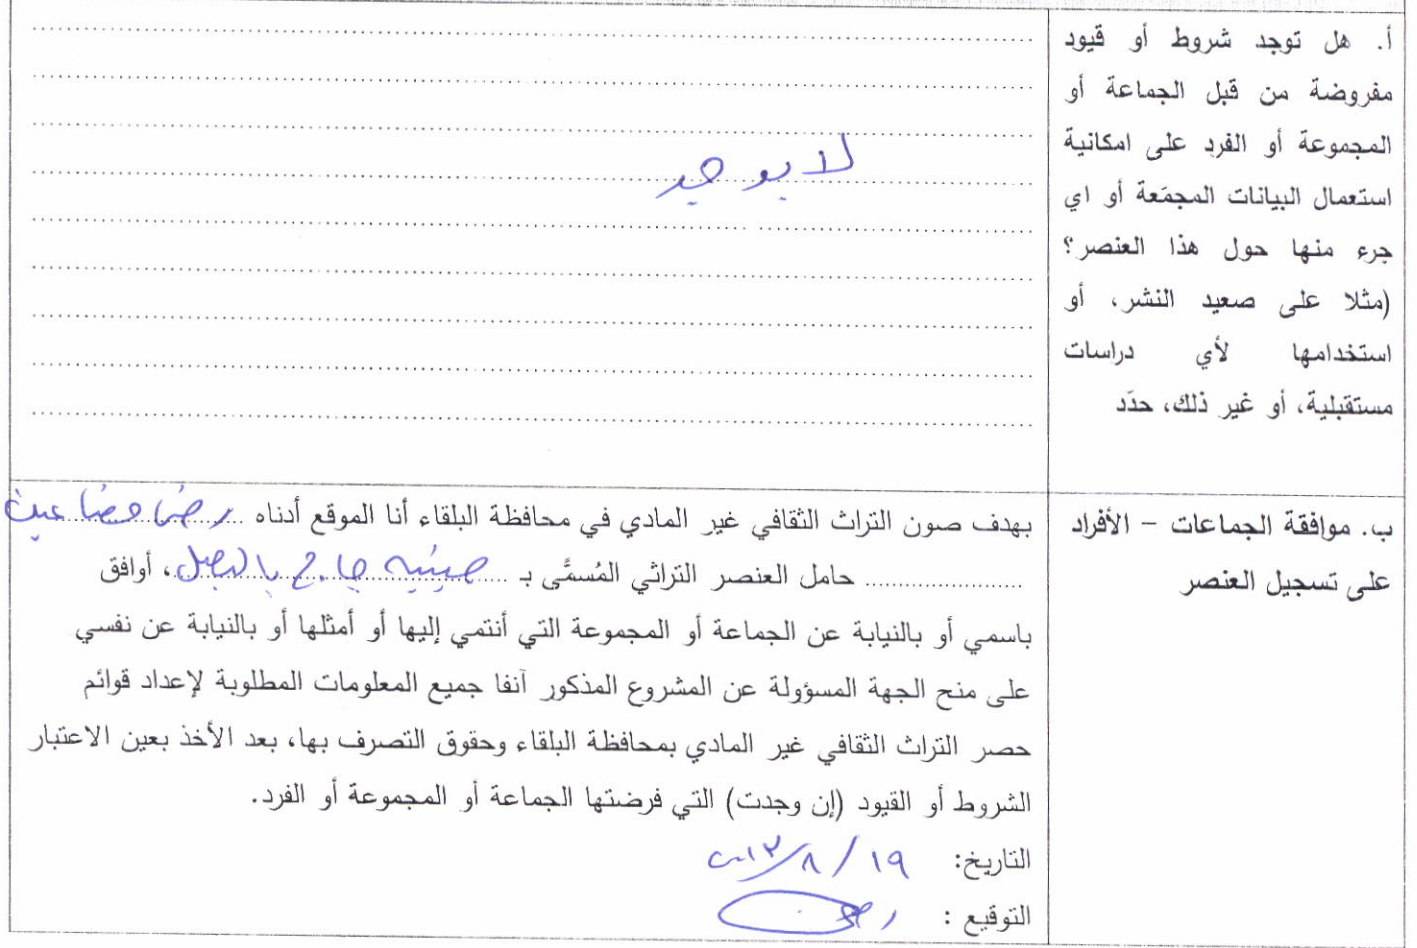 أ. هل توجد شروط أو قيود
مفروضة من قبل الجماعة أو
المجموعة أو الفرد على امكانية
استعمال البيانات المجمَعة أو اي
جرء منها حول هذا العنصر؟
(مثلا على صعيد النشر، أو
استخدامها لأي دراسات
مستقبلية، أو غير ذلك، حدَد
لا يوجد
ب. موافقة الجماعات - الأفراد
على تسجيل العنصر
بهدف صون التراث الثقافي غير المادي في محافظة البلقاء أنا الموقع أدناه رضا
حامل العنصر التراثي المُسمَّى بـ صينية جاج بالبصل، أوافق
باسمي أو بالنيابة عن الجماعة أو المجموعة التي أنتمي إليها أو أمثلها أو بالنيابة عن نفسي
على منح الجهة المسؤولة عن المشروع المذكور آنفا جميع المعلومات المطلوبة لإعداد قوائم
حصر التراث الثقافي غير المادي بمحافظة البلقاء وحقوق التصرف بها، بعد الأخذ بعين الاعتبار
الشروط أو القيود (إن وجدت) التي فرضتها الجماعة أو المجموعة أو الفرد.
التاريخ: ١٩/٨/٢٠١٣
التوقيع :